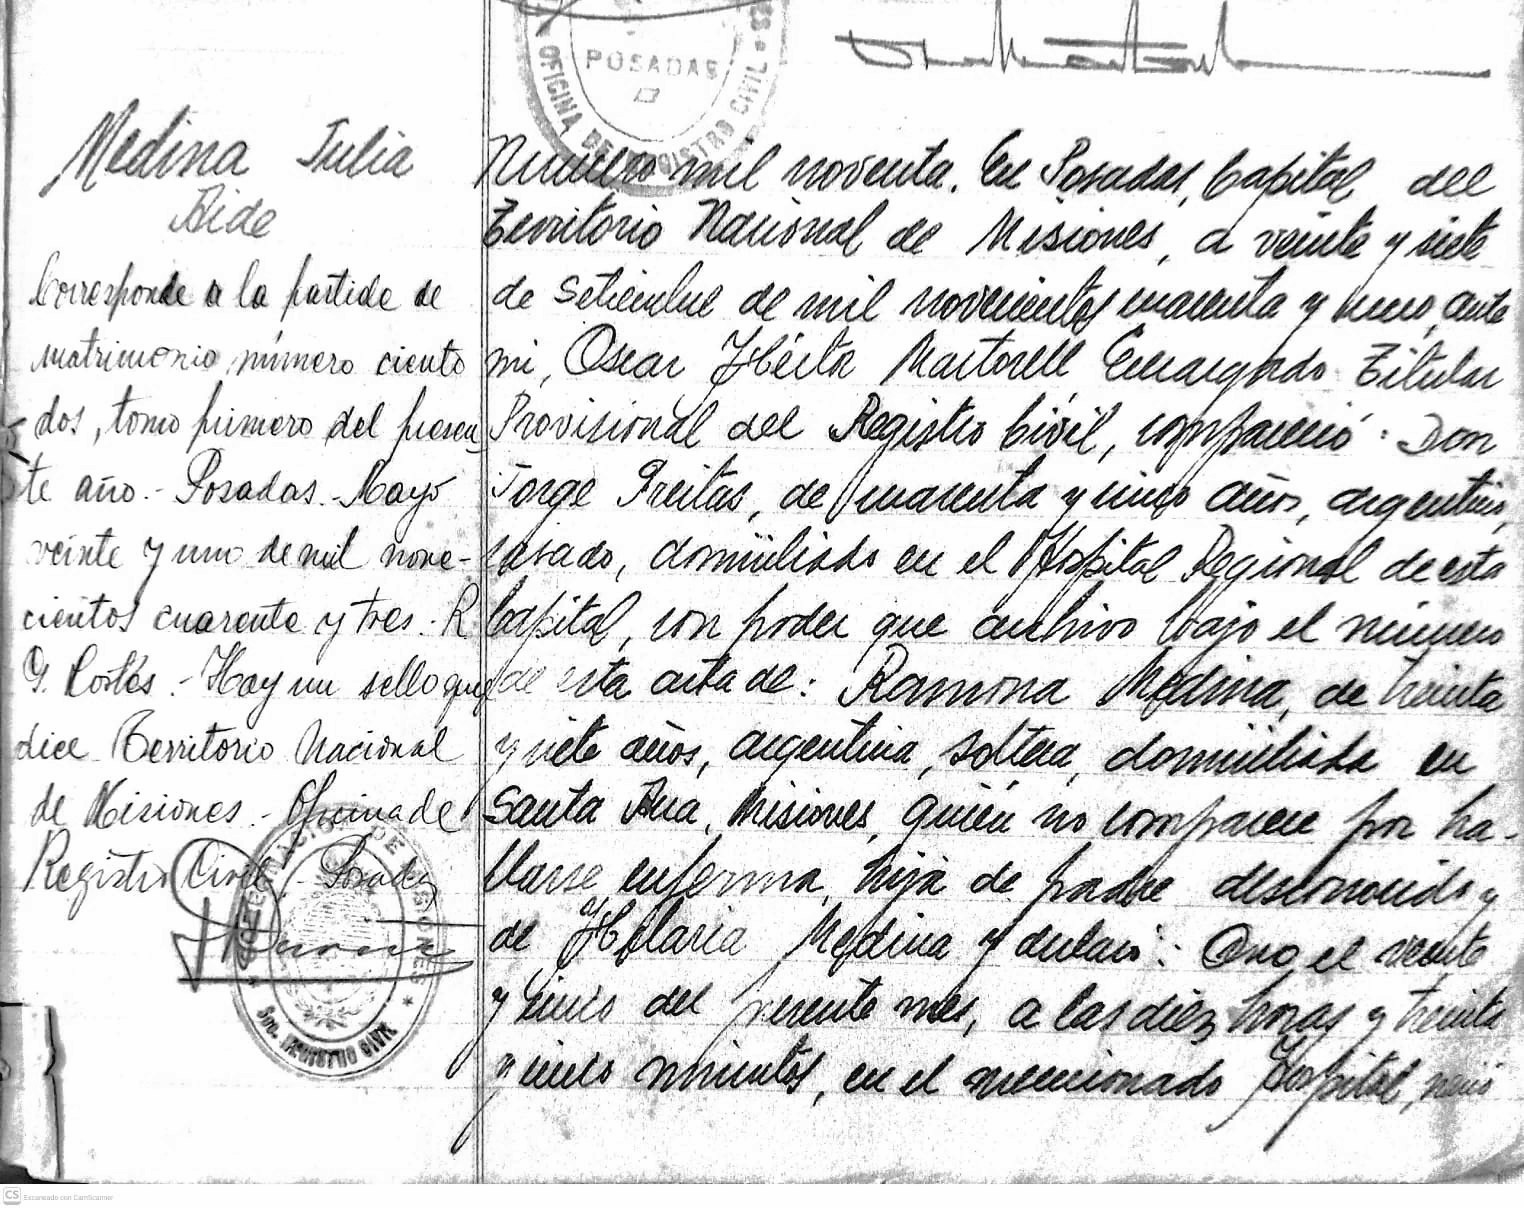 POSADAS
OFICINA DE REGISTRO CIVIL
Medina Julia
Aide
Corresponde a la partida de
matrimonio número ciento
dos, tomo primero del presen
te año.- Posadas. Mayo
veinte y uno de mil nove-
cientos cuarenta y tres.- R
G. Cortés.- Hay un sello que
dice Territorio Nacional
de Misiones.- Oficina de
Registro Civil - Posadas
REGISTRO CIVIL
Numero mil noventa. En Posadas, Capital del
Territorio Nacional de Misiones, a veinte y siete
de setiembre de mil novecientos cuarenta y uno, ante
mi, Oscar Martorell Encargado Titular
Provisional del Registro Civil, compareció: Don
Jorge Freitas, de cuarenta y cinco años, argentino,
casado, domiciliado en el Hospital Regional de esta
Capital, con poder que archivo bajo el número
de esta acta de: Ramona Medina, de treinta
y siete años, argentina, soltera, domiciliada en
Santa Ana, Misiones, quién no comparece por ha-
llarse enferma, hija de padre desconocido y
de Hilaria Medina y declaró: Que el veinte
y cinco del presente mes, a las diez horas y treinta
y cinco minutos, en el mencionado Hospital, nació
CS Escaneado con CamScanner